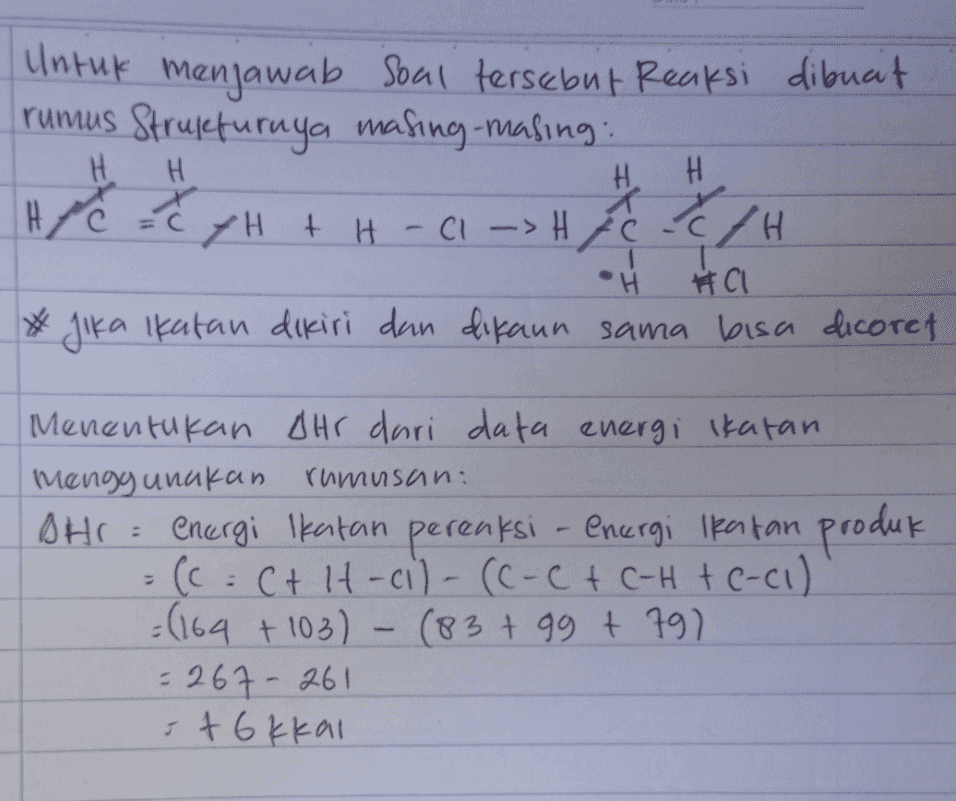 Untuk menjawab Soal tersebut Reaksi dibuat
rumus Strukturnya masing-masing:
H H H H
H / C = C / H + H - Cl -> H / C - C / H
H Cl
* jika ikatan dikiri dan dikaun sama bisa dicoret
Menentukan ΔHr dari data energi ikatan
menggunakan rumusan:
ΔHr = energi Ikatan pereaksi - energi Ikatan produk
= (C = C + H - Cl) - (C-C + C-H + C-Cl)
= (164 + 103) - (83 + 99 + 79)
= 267 - 261
= +6 kkal